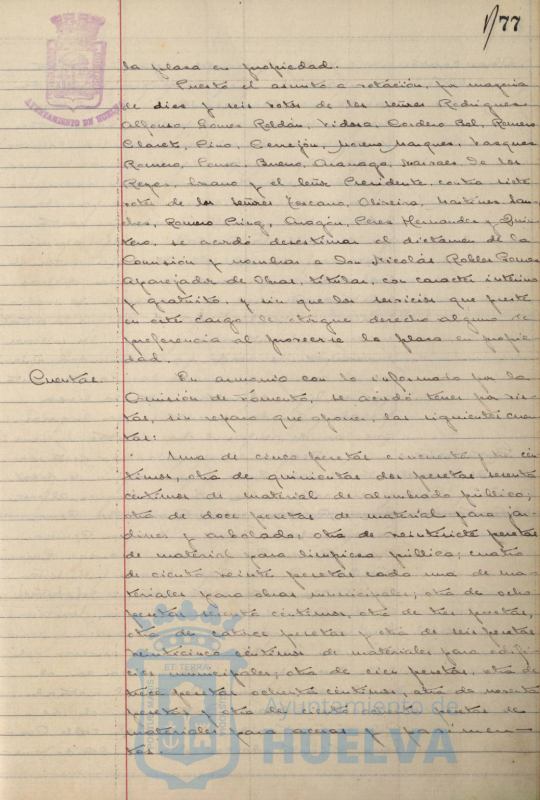 77
AYUNTAMIENTO DE HUELVA
la plaza en propiedad.
Puesto el asunto a votación, por mayoria
de diez y seis votos de los señores Rodriguez
Alfonso, Gomez Roldán, Vidosa, Cordero Bel, Romero
Claret, Pino, Cerrejón, Moreno Marquez, Vazquez
Romero, Ponce, Bueno, Narvaez de los
Reyes, y el Señor Presidente, contra siete
votos de los señores Toscano, Oliveira, Martinez San-
chez, Romero Aragón, Perez Hernandez y Quin-
tero, se acordó desestimar el dictámen de la
Comisión y nombrar a Don Nicolás Robles Gomez
Aparejador de Obras, titular, con carácter interino
y gratuito, y sin que los servicios que preste
en este cargo le otorgue derecho alguno de
preferencia al proveerse la plaza en propie-
dad.
Cuentas. En armonia con lo informado por la
Comisión de Fomento, se acordó tener por vis-
tas, sin reparo que oponer, las siguientes cuen-
tas:
Una de cinco pesetas cincuenta y cén-
timos, otra de quinientas dos pesetas sesenta
céntimos de material de alumbrado público;
otra de doce pesetas de material para jar-
dines y arbolado; otra de veintisiete pesetas
de material para limpieza pública; cuatro
de ciento veinte pesetas cada una de ma-
teriales para obras municipales; otra de ocho
pesetas sesenta céntimos, otra de tres pesetas,
otra de catorce pesetas y otra de seis pesetas
veinticinco céntimos de materiales para edifi-
cios municipales; otra de cien pesetas, otra de
trece pesetas ochenta céntimos, otra de noventa
pesetas y otra de ciento pesetas de
materiales para aceras y pavimen-
tos.
Ayuntamiento de
HUELVA